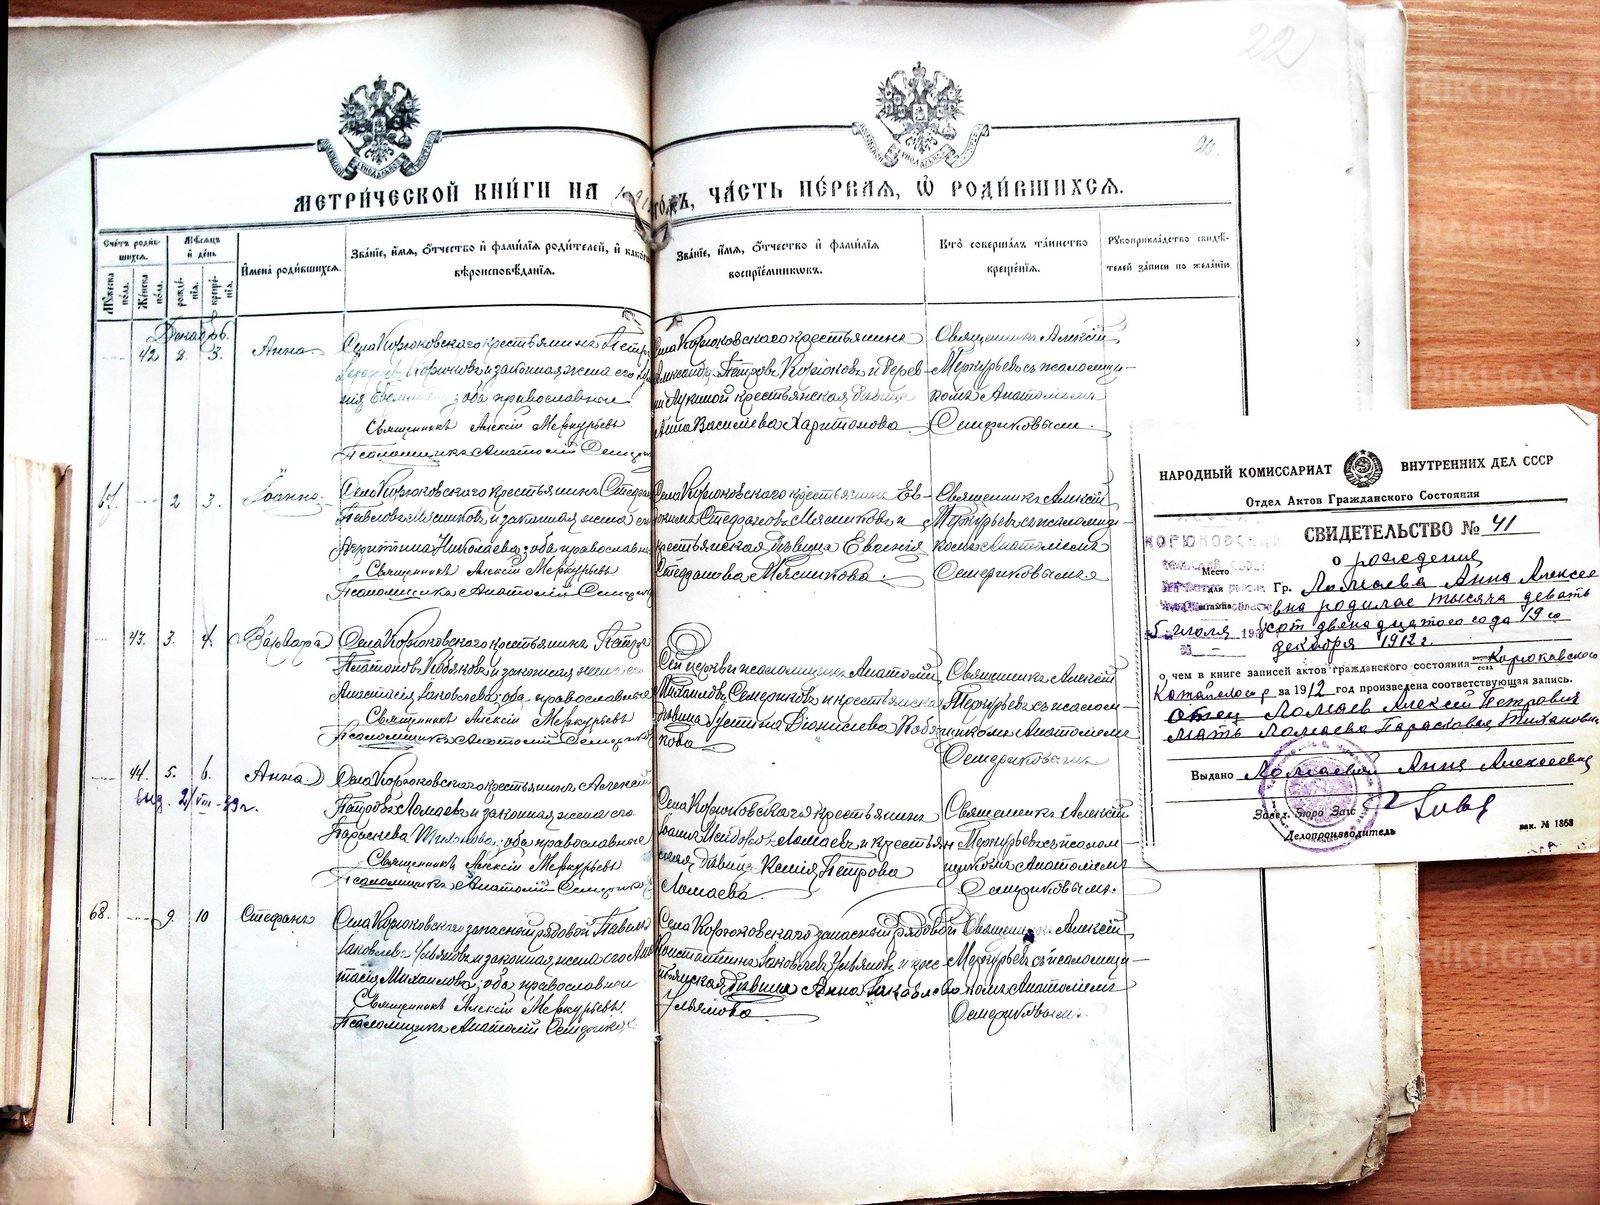 22
20.
МЕТРИ́ЧЕСКОЙ КНИ́ГИ НА 1912 го́дъ, ЧА́СТЬ ПЕ́РВАЯ, Ѡ҆ РОДИ́ВШИХСѦ.
Сче́тъ роди́вшихся.
Мꙋ́жеска по́ла.
Же́нска по́ла.
Мѣ́сяцъ и҆ де́нь
рожде́нїя.
креще́нїя.
И҆мена̀ роди́вшихся.
Зва́нїе, и҆́мя, ѻ҆́тчество и҆ фами́лїя роди́телей, и҆ како́гѡ
вѣроисповѣ́данїя.
Зва́нїе, и҆́мя, ѻ҆́тчество и҆ фами́лїя
воспрїе́мникѡвъ.
Кто̀ соверша́лъ та́инство
креще́нїя.
Рꙋкоприкла́дство свидѣ́телей за́писи по жела́нїю.
Декабрь.
42 3. Анна
Села Корюковскаго крестьянинъ Петръ
Корюковъ и законная жена его
оба православные.
Священникъ Алексій Меркурьевъ
Псаломщикъ Анатолій
Села Корюковскаго крестьянинъ
Александръ Петровъ Корюковъ и дерев-
ни крестьянская дѣвица
Анна Васильева Харитонова
Священникъ Алексій
Меркурьевъ съ псаломщи-
комъ Анатоліемъ
Семериковымъ.
67. 2 3. Іоаннъ
Села Корюковскаго крестьянинъ Стефанъ
Павловъ Мясниковъ и законная жена его
Николаева; оба православные
Священникъ Алексій Меркурьевъ
Псаломщикъ Анатолій
Села Корюковскаго крестьянинъ Ев-
Стефановъ Мясниковъ и
крестьянская дѣвица Евгенія
Стефанова Мясникова.
Священникъ Алексій
Меркурьевъ съ псаломщи-
комъ Анатоліемъ
Семериковымъ
43. 3. 4. Варвара
Села Корюковскаго крестьянинъ Петръ
Платоновъ Кобяковъ и законная жена его
Анастасія Іаковлева; оба православные
Священникъ Алексій Меркурьевъ
Псаломщикъ Анатолій Семериковъ
Сей церкви псаломщикъ Анатолій
Михайловъ Семериковъ и крестьянская
дѣвица Іустина Діонисіева Кобя-
кова
Священникъ Алексій
Меркурьевъ съ псалом-
щикомъ Анатоліемъ
Семериковымъ
44. 5. 6. Анна
выд. 2/VIII-39 г.
Села Корюковскаго крестьянинъ Алексій
Петровъ Ломаевъ и законная жена его
Параскева Тихонова; оба православные
Священникъ Алексій Меркурьевъ
Псаломщикъ Анатолій Семериковъ
Села Корюковскаго крестьянинъ
Ломаевъ и крестьян-
ская дѣвица Ксенія Петрова
Ломаева.
Священникъ Алексій
Меркурьевъ съ псалом-
щикомъ Анатоліемъ
Семериковымъ.
68. 9. 10 Стефанъ
Села Корюковскаго запасный рядовой Павелъ
Іаковлевъ Ульяновъ и законная жена его Анас-
тасія Михаилова; оба православные
Священникъ Алексій Меркурьевъ.
Псаломщикъ Анатолій Семериковъ
Села Корюковскаго запасный рядовой
Константинъ Іаковлевъ Ульяновъ и крес-
тьянская дѣвица Анна Іаковлева
Ульянова
Священникъ Алексій
Меркурьевъ съ псаломщи-
комъ Анатоліемъ
Семериковымъ.
НАРОДНЫЙ КОМИССАРИАТ ВНУТРЕННИХ ДЕЛ СССР
Отдел Актов Гражданского Состояния
СВИДЕТЕЛЬСТВО № 41
о рождении
КОРЮКОВСКИЙ
Место
для
штампа
5 июля 193
Гр. Ломаева Анна Алексе
евна родилас тысяча девять
сот двенадцатого года 19 го
декабря 1912 г.
о чем в книге записей актов гражданского состояния Корюковского
за 1912 год произведена соответствующая запись.
отец Ломаев Алексей Петрович
мать Ломаева Парасковья Тихоновна
Выдано Ломаевой Анне Алексеевне
Завед. Бюро Загс
Делопроизводитель
зак. № 1363